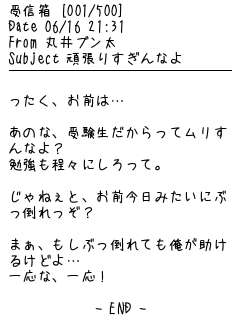 受信箱 [001/500]
Date 06/16 21:31
From 丸井ブン太
Subject 頑張りすぎんなよ
ったく、お前は…
あのな、受験生だからってムリす
んなよ？
勉強も程々にしろって。
じゃねぇと、お前今日みたいにぶ
っ倒れっぞ？
まぁ、もしぶっ倒れても俺が助け
るけどよ…
一応な、一応！
- END -